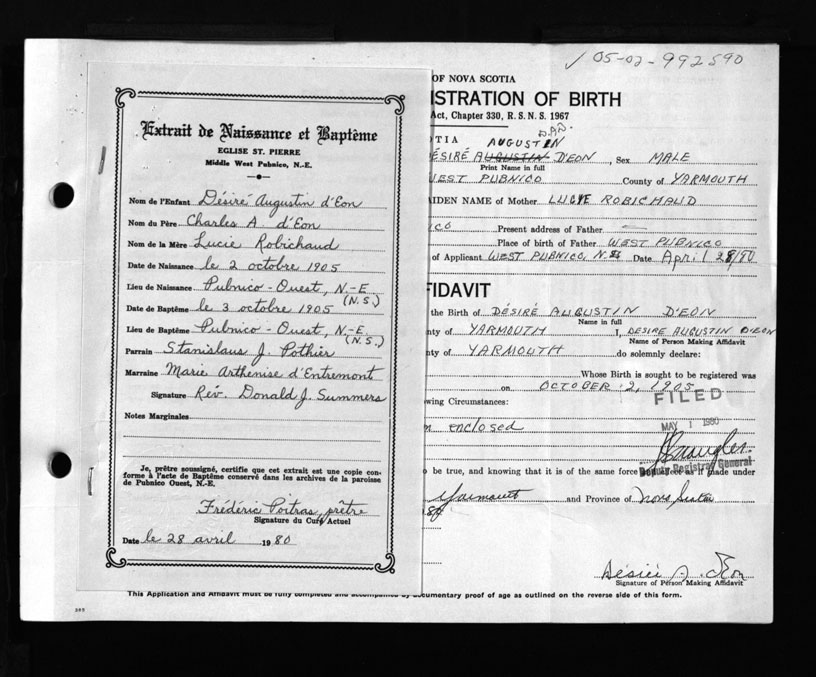 05-02-992590
Extrait de Naissance et Baptême
EGLISE ST. PIERRE
Middle West Pubnico, N.-E.
Nom de l'Enfant Désiré Augustin d'Eon
Nom du Père Charles A. d'Eon
Nom de la Mère Lucie Robichaud
Date de Naissance le 2 octobre 1905
Lieu de Naissance Pubnico-Ouest, N.-E
(N.S.)
Date de Baptême le 3 octobre 1905
Lieu de Baptême Pubnico-Ouest, N.-E.
(N.S.)
Parrain Stanislaus J. Pothier
Marraine Marie Arthenise d'Entremont
Signature Rév. Donald J. Summers
Notes Marginales
Je, prêtre soussigné, certifie que cet extrait est une copie con-
forme à l'acte de Baptême conservé dans les archives de la paroisse
de Pubnico Ouest, N.-E.
Frédéric Poitras, prêtre
Signature du Curé Actuel
Date le 28 avril 1980
OF NOVA SCOTIA
ISTRATION OF BIRTH
Act, Chapter 330, R. S. N. S. 1967
D.A.D.
OTIA AUGUSTIN
ÉSIRÉ AUGUSTIN D'EON, Sex MALE
Print Name in full
WEST PUBNICO County of YARMOUTH
IDEN NAME of Mother LUCIE ROBICHAUD
ICO Present address of Father
Place of birth of Father WEST PUBNICO
of Applicant WEST PUBNICO, N.S. Date April 28/80
FIDAVIT
the Birth of DÉSIRÉ AUGUSTIN D'EON
Name in full
nty of YARMOUTH I, DESIRE AUGUSTIN D'EON
Name of Person Making Affidavit
nty of YARMOUTH do solemnly declare:
Whose Birth is sought to be registered was
on OCTOBER 2, 1905
FILED
owing Circumstances:
MAY 1 1980
enclosed
Deputy Registrar General
o be true, and knowing that it is of the same force effect as if made under
Yarmouth and Province of Nova Scotia
Désiré A. d'Eon
Signature of Person Making Affidavit
This Application and Affidavit must be fully completed and accompanied by documentary proof of age as outlined on the reverse side of this form.